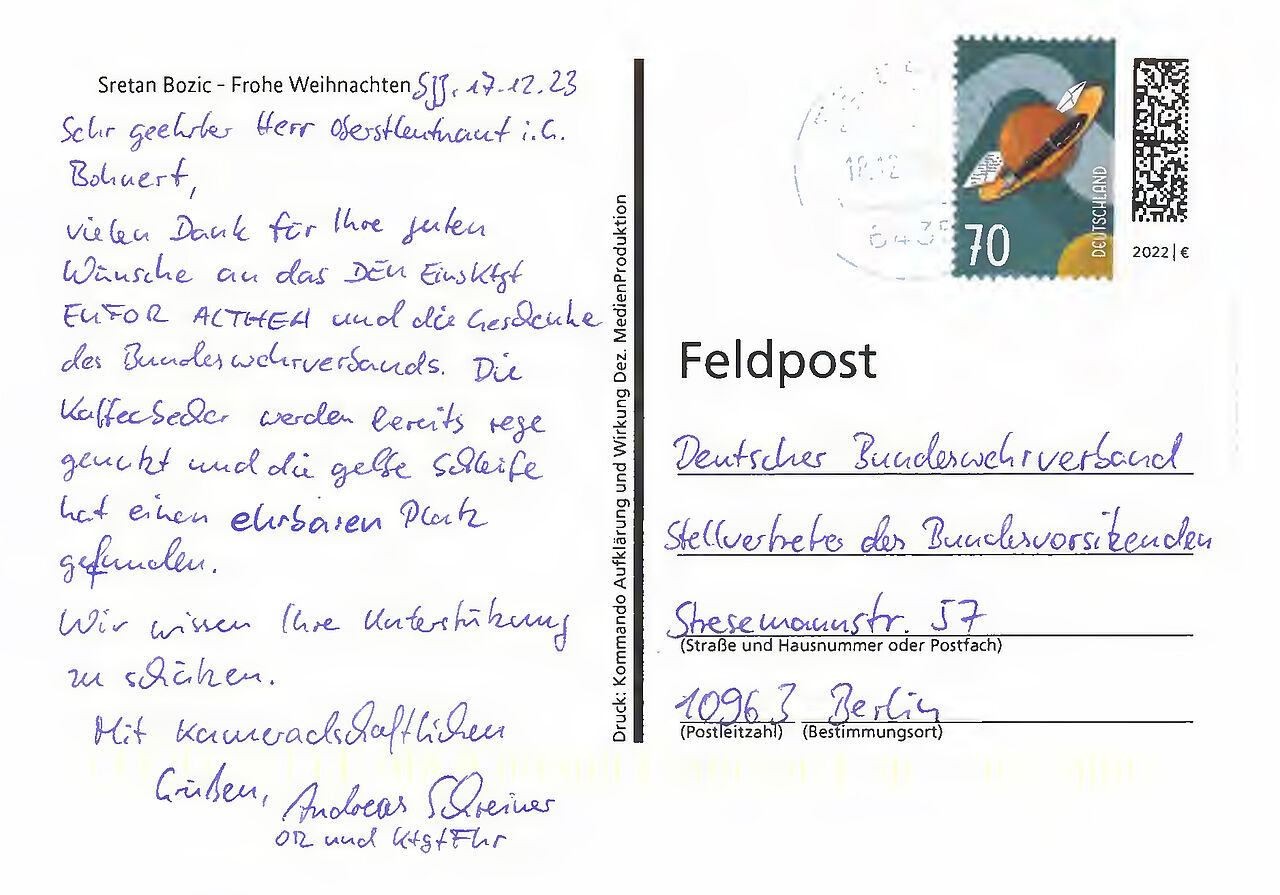 Sretan Bozic - Frohe Weihnachten SJJ, 17.12.23
Sehr geehrter Herr Oberstleutnant i.G.
Bohnert,
vielen Dank für Ihre guten
Wünsche an das DEU EinsKtgt
EUFOR ALTHEA und die Geschenke
des Bundeswehrverbands. Die
Kaffeebecher werden bereits rege
genutzt und die gelbe Schleife
hat einen ehrbaren Platz
gefunden.
Wir wissen Ihre Unterstützung
zu schätzen.
Mit Kameradschaftlichen
Grüßen, Andreas Schreiner
und KtgtFhr
Druck: Kommando Aufklärung und Wirkung Dez. MedienProduktion
18.12
70
DEUTSCHLAND
2022 | €
Feldpost
Deutscher Bundeswehrverband
Stellvertreter des Bundesvorsitzenden
Stresemannstr. 57
(Straße und Hausnummer oder Postfach)
10963 Berlin
(Postleitzahl) (Bestimmungsort)